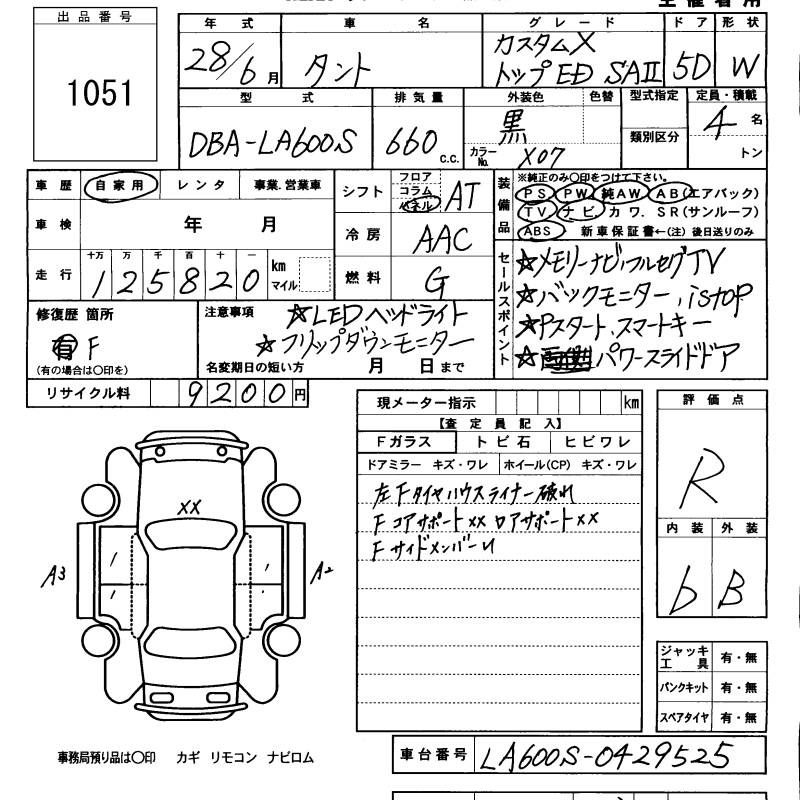 主催者用
出品番号
1051
年式 車名 グレード ドア 形状
28/6月 タント カスタムX トップED SAII 5D W
型式 排気量 外装色 色替 型式指定 定員・積載
DBA-LA600S 660 c.c. 黒 カラーNo. X07 類別区分 4名 トン
車歴 自家用 レンタ 事業.営業車
車検 年 月
走行 十万 万 千 百 十 一
125820 km マイル
シフト フロア コラム パネル AT
冷房 AAC
燃料 G
装備品 ※純正のみ〇印をつけて下さい。
PS PW 純AW AB(エアバック)
TV ナビ. カワ. SR(サンルーフ)
ABS 新車保証書←(注)後日送りのみ
セールスポイント
☆メモリーナビ,フルセグTV
☆バックモニター,istop
☆Pスタート.スマートキー
☆パワースライドドア
修復歴 箇所
有 F
(有の場合は〇印を)
注意事項 ☆LEDヘッドライト
☆フリップダウンモニター
名変期日の短い方 月 日まで
リサイクル料 9200円
現メーター指示 km
【査定員記入】
Fガラス トビ石 ヒビワレ
ドアミラー キズ・ワレ ホイール(CP) キズ・ワレ
左Fタイヤハウスライナー破れ
Fコアサポートxx ロアサポートxx
Fサイドメンバーu
評価点
R
内装 外装
b B
XX
A3
A2
ジャッキ工具 有・無
パンクキット 有・無
スペアタイヤ 有・無
事務局預り品は〇印 カギ リモコン ナビロム
車台番号 LA600S-0429525